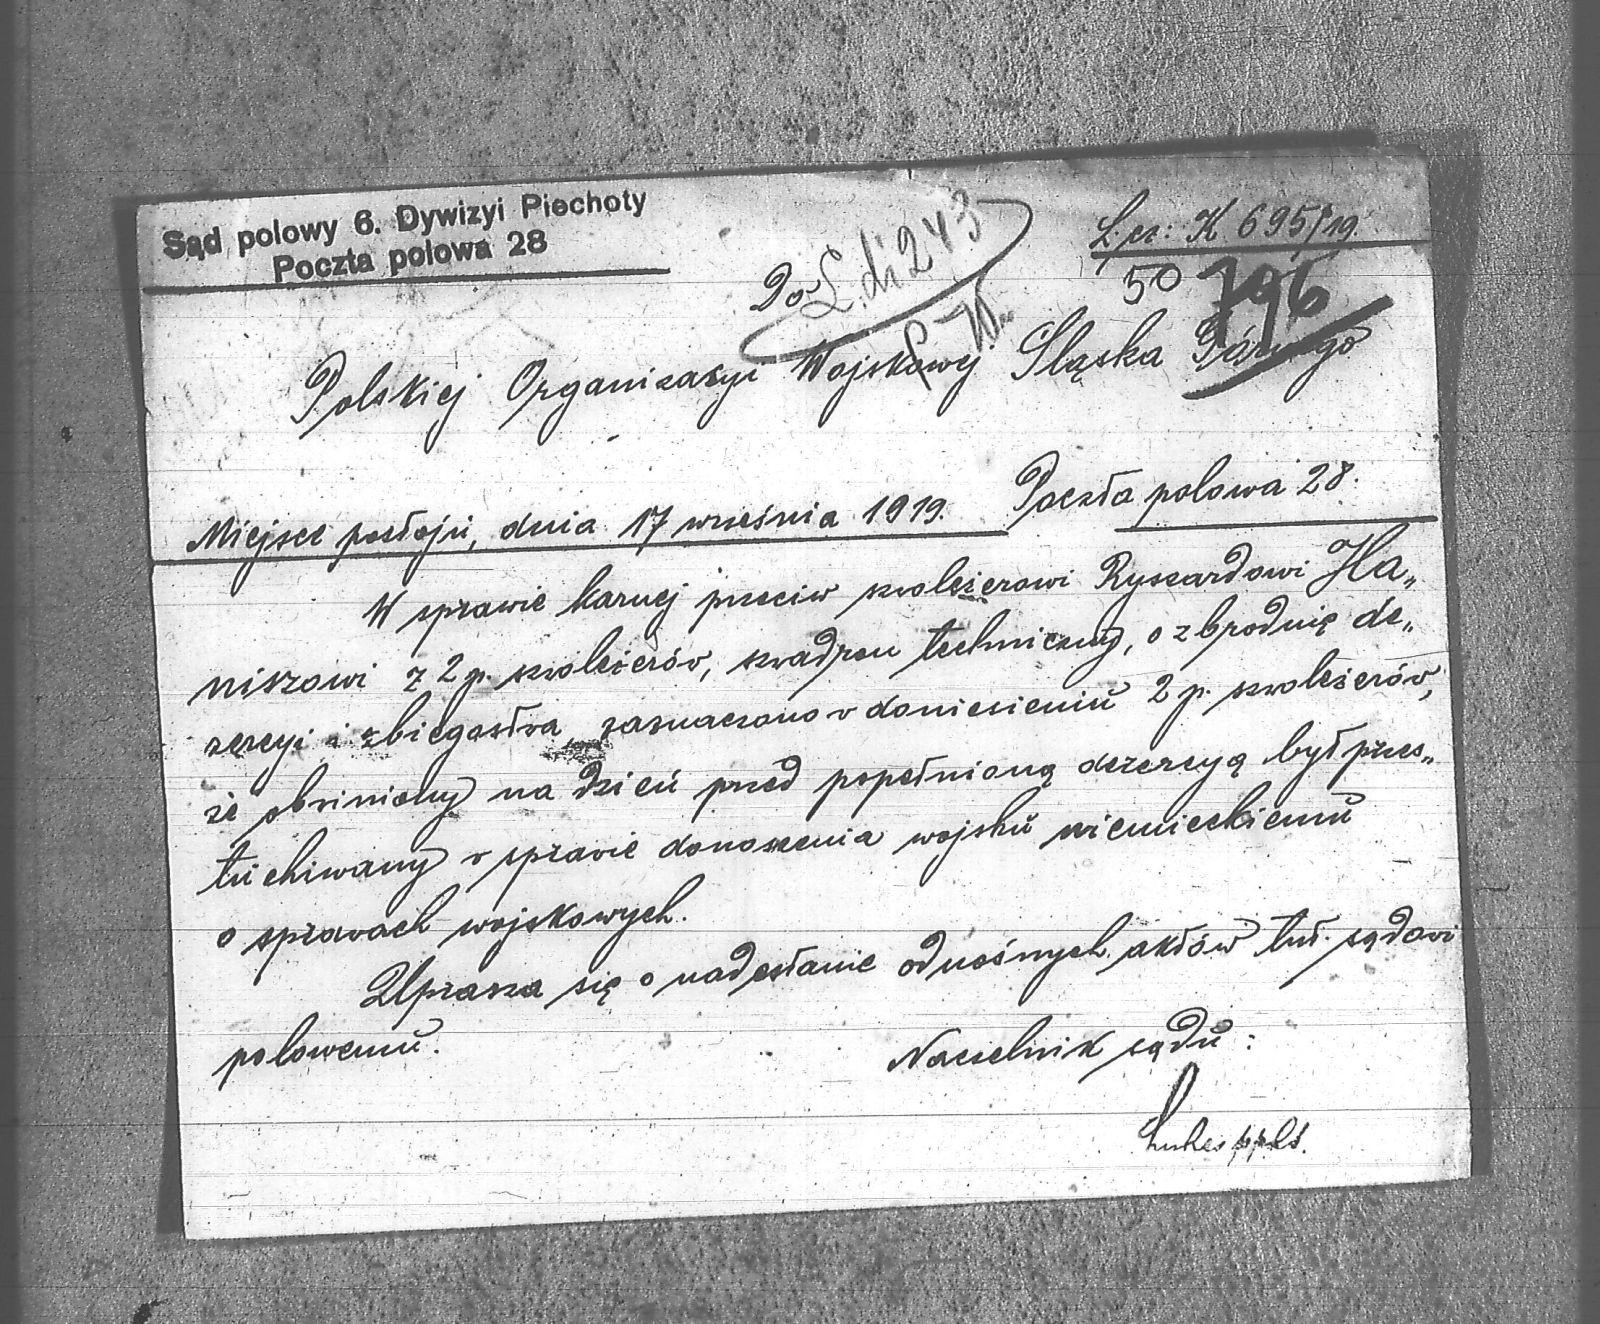 Sąd polowy 6. Dywizyi Piechoty
Poczta polowa 28
L.cz: K 695/19.
50 796
Do L. dz 243
Polskiej Organizacyi Wojskowej Śląska Górnego
Poczta polowa 28.
Miejsce postoju, dnia 17 września 1919.
W sprawie karnej przeciw szwoleżerowi Ryszardowi Ha„
niszowi z 2 p. szwoleżerów, szwadron techniczny, o zbrodnię de„
zercyi i zbiegostwa, zaznaczono w doniesieniu 2 p. szwoleżerów,
że obwiniony na dzień przed popełnioną dezercyą był przes„
łuchiwany w sprawie donoszenia wojsku niemieckiemu
o sprawach wojskowych.
Uprasza się o nadesłanie odnośnych aktów tut. sądowi
polowemu.
Naczelnik sądu: